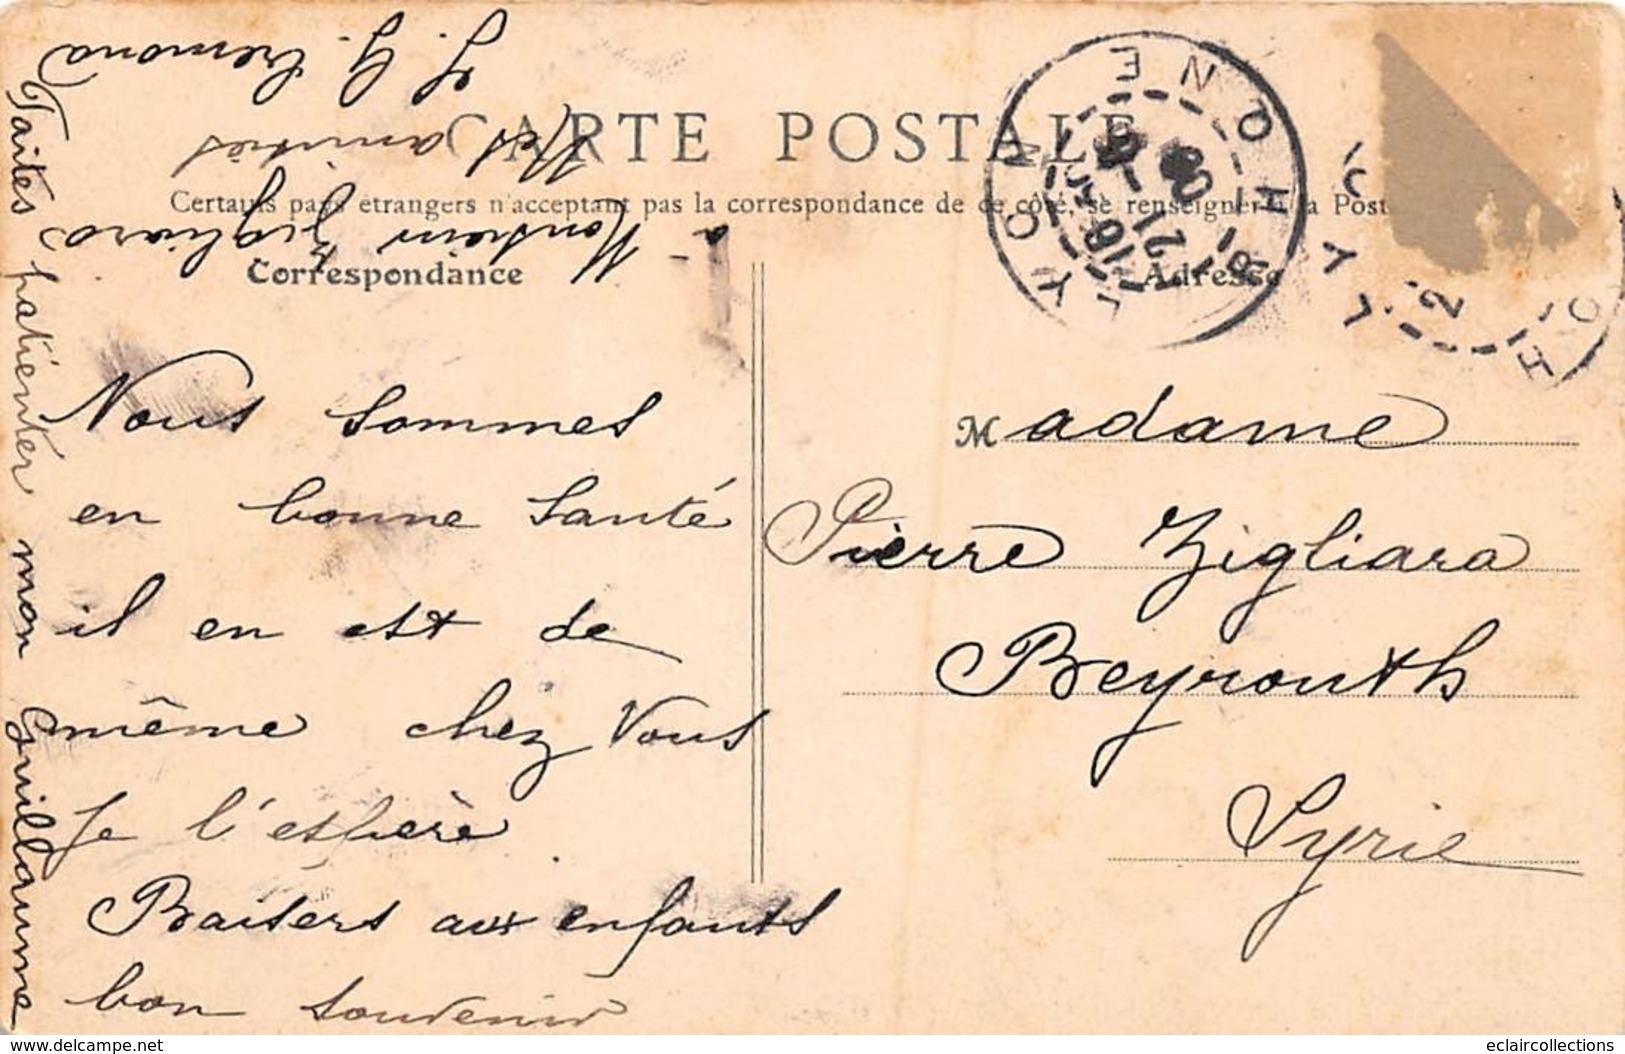 CARTE POSTALE
Certains pays étrangers n'acceptant pas la correspondance de ce côté, se renseigner à la Post
Correspondance
Adresse
Nous sommes
en bonne santé
il en est de
même chez Vous
Je l'espère
Baisers aux enfants
bon souvenir
à
Monsieur Zigliara
Mes amitiés
J. G. Cremona
Taites patienter mon Guillaume
Madame
Pierre Zigliara
Beyrouth
Syrie
LYON RHONE
16
21
08
LYON
RHO
delcampe.net
eclaircollections